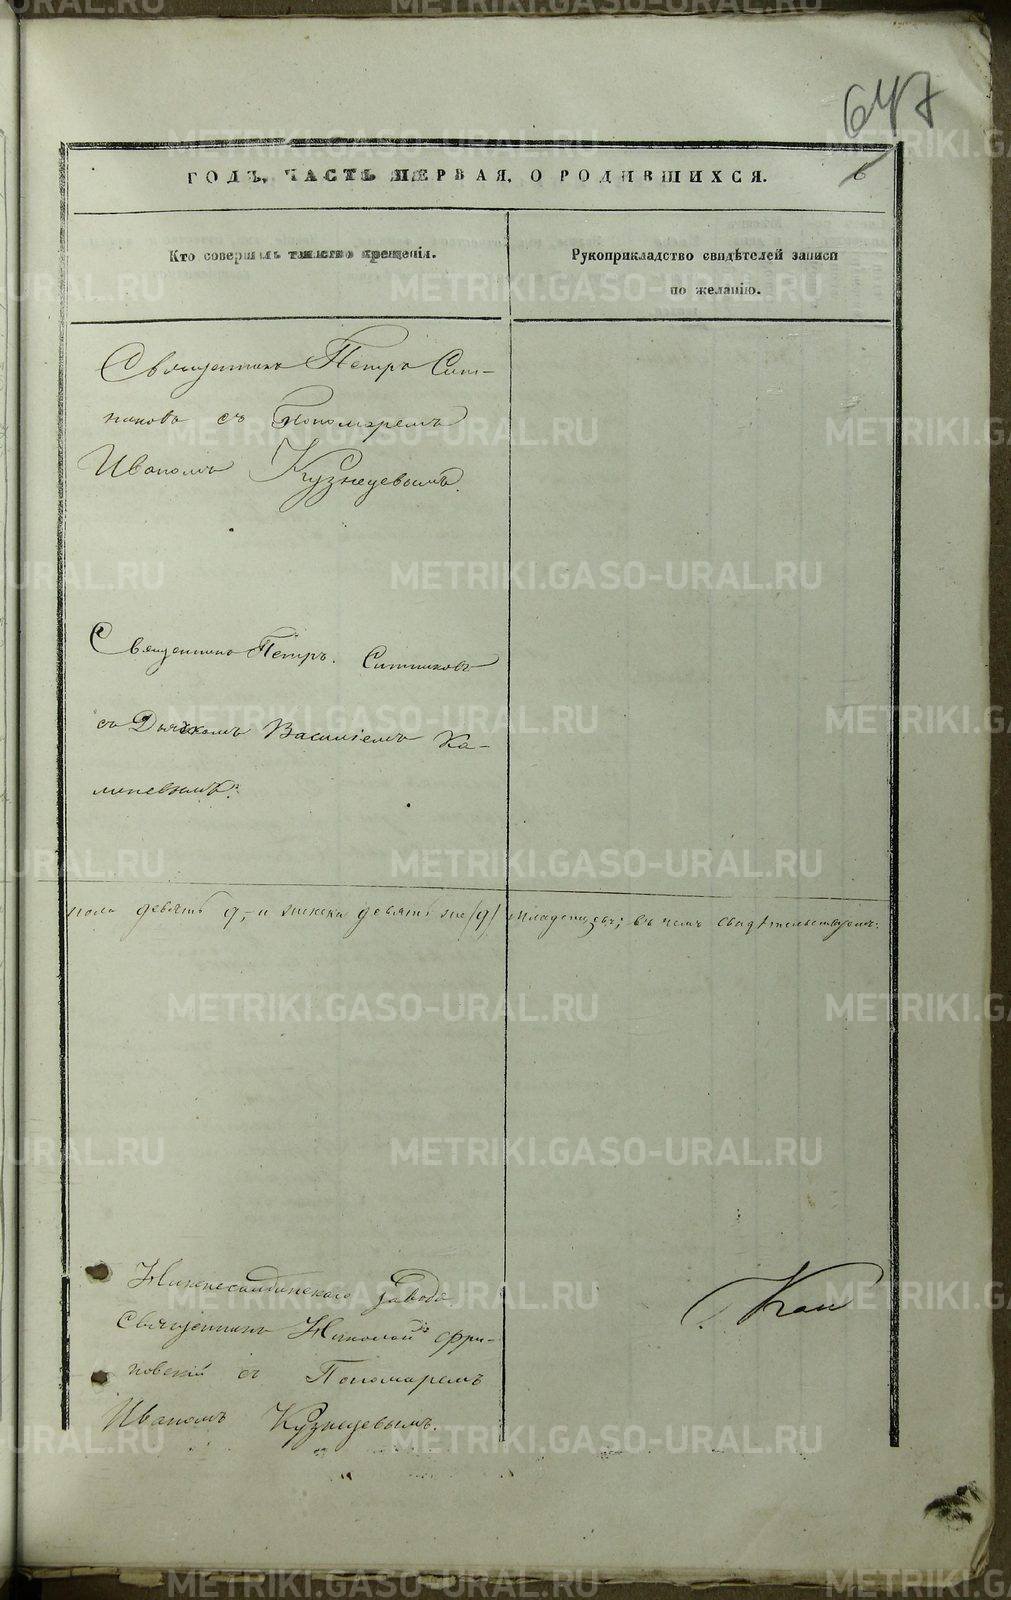 647
ГОДЪ, ЧАСТЬ ПЕРВАЯ, О РОДИВШИХСЯ.
6
Кто совершалъ таинство крещенія.
Рукоприкладство свидѣтелей записи
по желанію.
Священникъ Петръ Сит-
никовъ съ Пономаремъ
Иваномъ Кузнецевымъ.
Священникъ Петръ Ситниковъ
съ Дьячкомъ Василіемъ Ка-
линевымъ.
пола девять 9, и женска девять же /9/ младенцевъ; въ чемъ свидѣтельствуемъ:
Нижнесалдинскаго завода
Священникъ Николай
новскій съ Пономаремъ
Иваномъ Кузнецевымъ.
METRIKI.GASO-URAL.RU